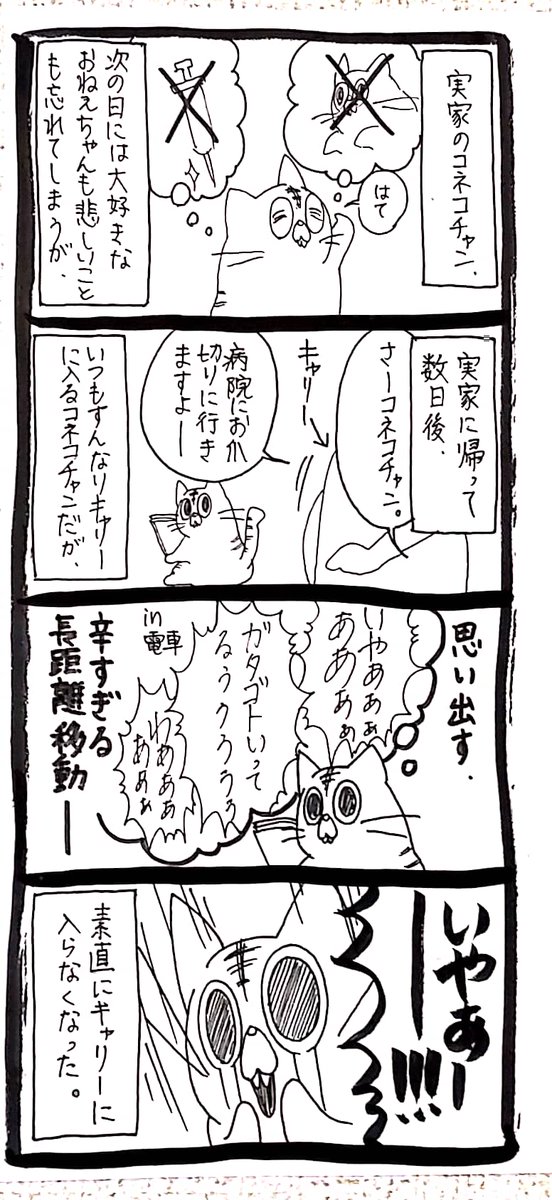 実家のコネコチャン、
はて
次の日には大好きな
おねぇちゃんも悲しいこと
も忘れてしまうが、
実家に帰って
数日後、
さーコネコチャン。
キャリー→
病院にお爪
切りに行き
ますよー
いつもすんなりキャリー
に入るコネコチャンだが、
思い出す、
いやぁぁぁ
ああぁぁ
ガタゴトいって
るぅぅぅぅぅ
わぁぁぁ
あぁぁぁ
in
電車
辛すぎる
長距離移動ー
いやぁー
ー!!!!
素直にキャリーに
入らなくなった。